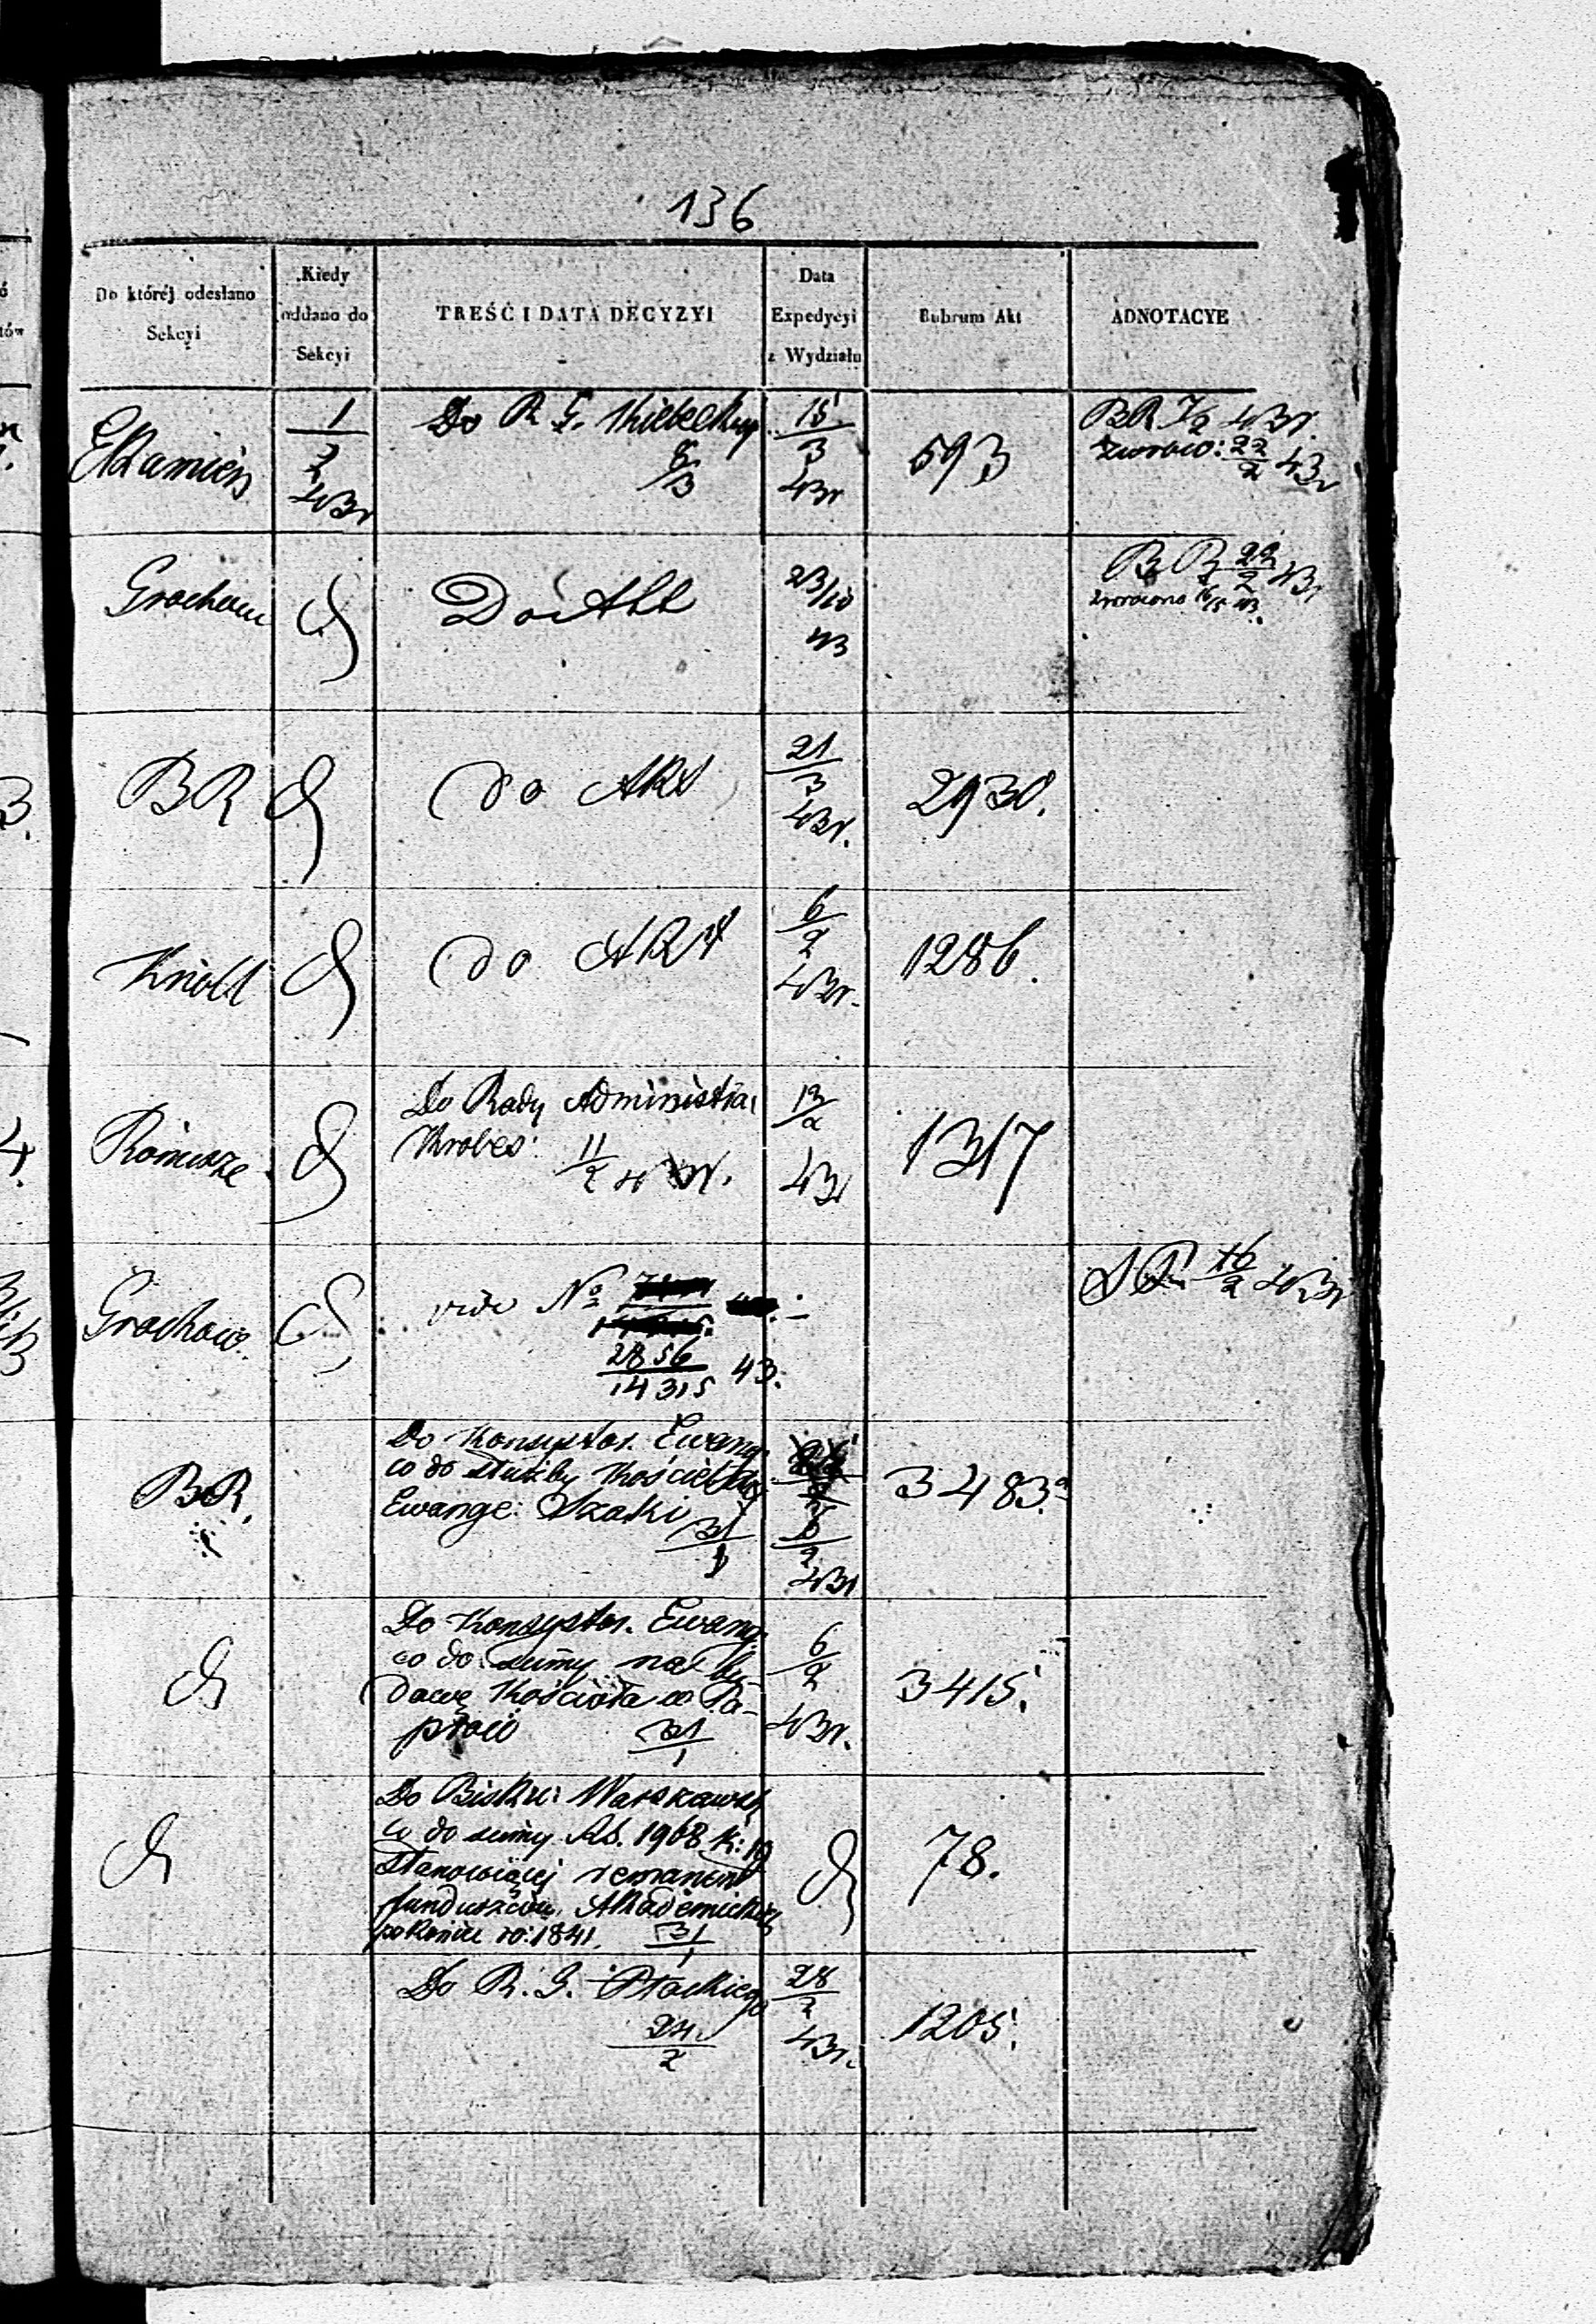 136
Do któréj odesłano
Sekcyi
Kiedy
oddano do
Sekcyi
TREŚĆ I DATA DECYZYI
Data
Expedycyi
z Wydziału
Rubrum Akt
ADNOTACYE
1
2
43r
Do R. G.
8/3
15
3
43r
593
BR 43r.
22/2 43r
Grochow
Do Akt
23/10
43
BR 22/2 43r
zwrócono
BR
do Akt
21
3
43r.
2930.
Knoll
do Akt
6
2
43r.
1286.
Do Rady Administra:
11/2 43r.
13
2
43r
1317
Grochow.
vide No
2856
14315 43.
16/2 43r
BR.
Do Konsystor. Ewang.
co do służby Kościelnej
Ewange: Szaki
31/1
6
2
43r
3483.
Do Konsystor. Ewang.
co do sumy na bu-
dowę Kościoła w Pa-
31/1
6
2
43r.
3415.
Do Warszawsk
co do sumy Rs. 1968 k: 19
stanowiącej remanent
funduszów Akademickich
po Końcu ro: 1841. 31/1
78.
Do R. G. Płockiego
24
2
28
2
43r.
1205.